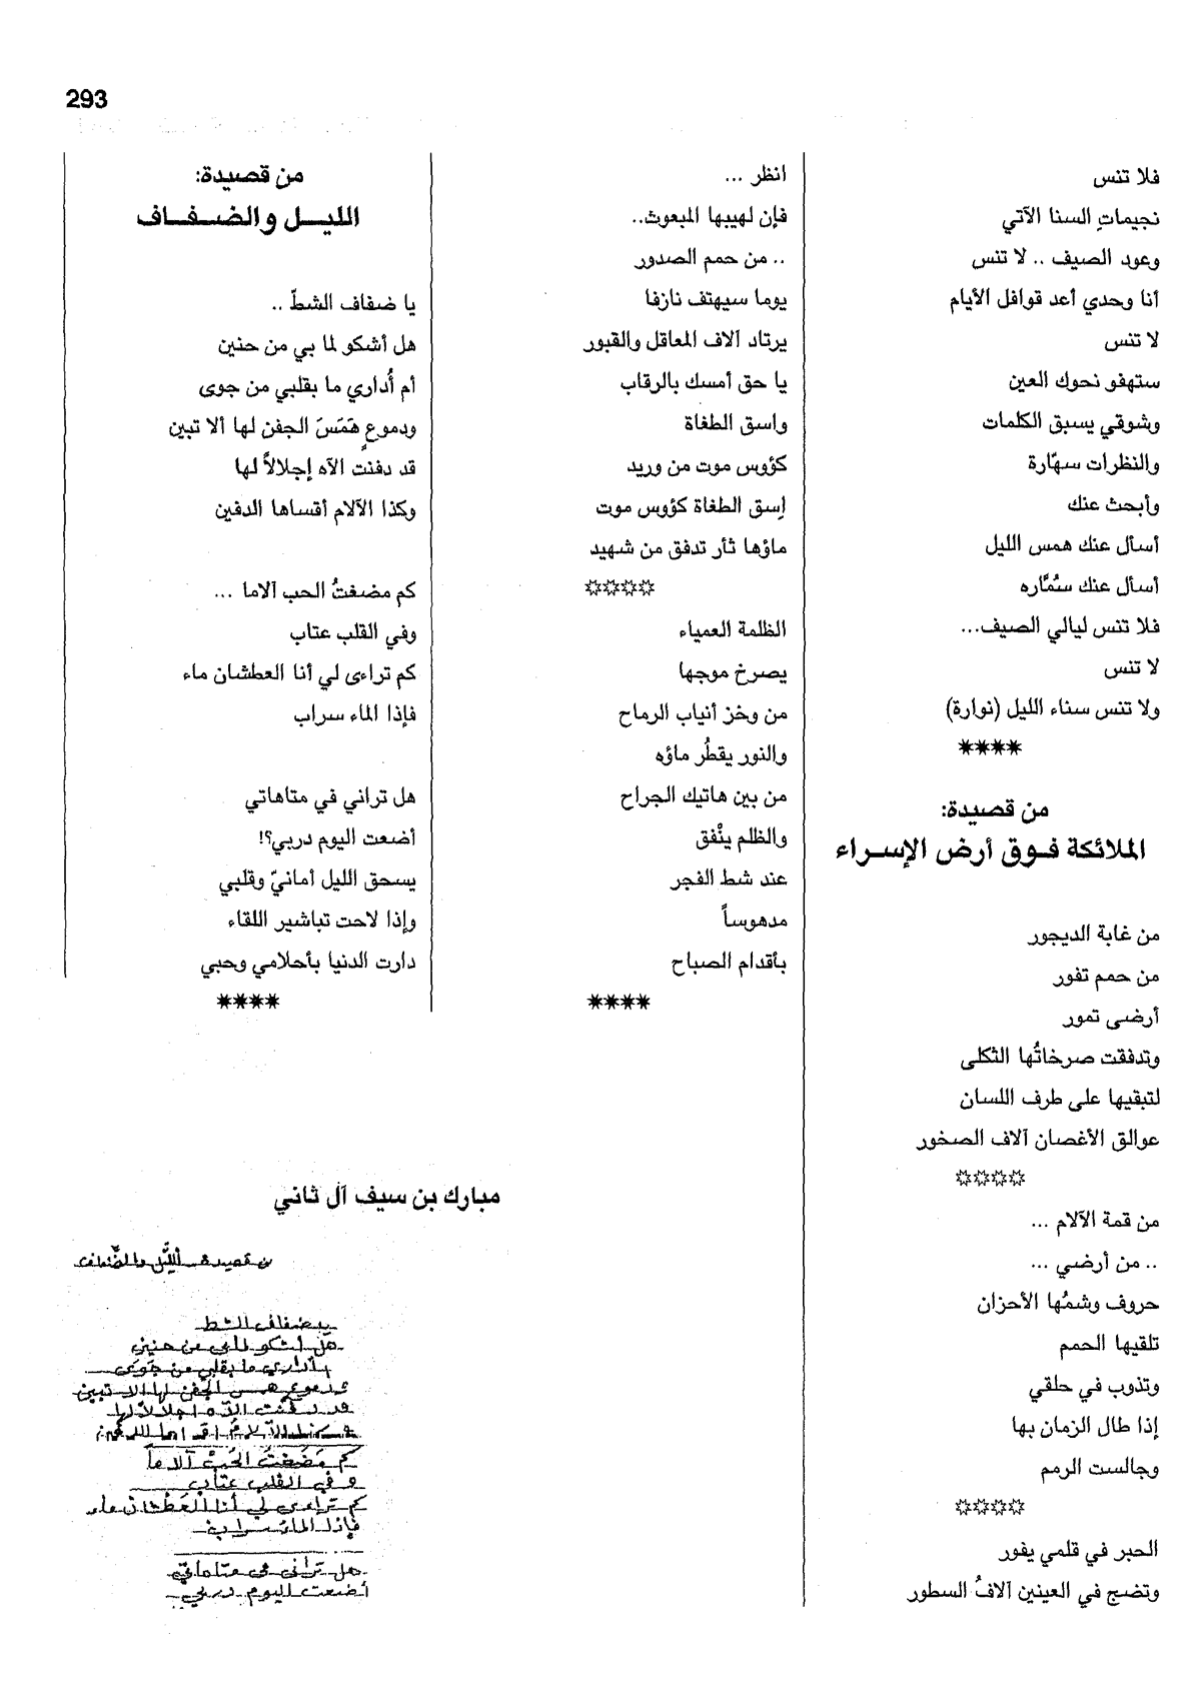 293
فلا تنس
نجيماتِ السنا الآتي
وعود الصيف .. لا تنس
أنا وحدي أعد قوافل الأيام
لا تنس
ستهفو نحوك العين
وشوقي يسبق الكلمات
والنظرات سهّارة
وأبحث عنك
أسأل عنك همس الليل
أسأل عنك سُمَّاره
فلا تنس ليالي الصيف...
لا تنس
ولا تنس سناء الليل (نوارة)
****
من قصيدة:
الملائكة فوق أرض الإسراء
من غابة الديجور
من حمم تفور
أرضى تمور
وتدفقت صرخاتُها الثكلى
لتبقيها على طرف اللسان
عوالق الأغصان آلاف الصخور
☼☼☼☼
من قمة الآلام ...
.. من أرضي ...
حروف وشمُها الأحزان
تلقيها الحمم
وتذوب في حلقي
إذا طال الزمان بها
وجالست الرمم
☼☼☼☼
الحبر في قلمي يفور
وتضج في العينين آلافُ السطور
انظر ...
فإن لهيبها المبعوث..
.. من حمم الصدور
يوما سيهتف نازفا
يرتاد آلاف المعاقل والقبور
يا حق أمسك بالرقاب
واسق الطغاة
كؤوس موت من وريد
إسق الطغاة كؤوس موت
ماؤها ثأر تدفق من شهيد
☼☼☼☼
الظلمة العمياء
يصرخ موجها
من وخز أنياب الرماح
والنور يقطُر ماؤه
من بين هاتيك الجراح
والظلم ينْفق
عند شط الفجر
مدهوساً
بأقدام الصباح
****
من قصيدة:
الليل والضفاف
يا ضفاف الشطّ ..
هل أشكو لما بي من حنين
أم أُداري ما بقلبي من جوى
ودموعٍ هَمَسَ الجفن لها ألا تبين
قد دفنت الآه إجلالاً لها
وكذا الآلام أقساها الدفين
كم مضغتُ الحب آلاما ...
وفي القلب عتاب
كم تراءى لي أنا العطشان ماء
فإذا الماء سراب
هل تراني في متاهاتي
أضعت اليوم دربي؟!
يسحق الليل أمانيّ وقلبي
وإذا لاحت تباشير اللقاء
دارت الدنيا بأحلامي وحبي
****
مبارك بن سيف آل ثاني
من قصيدة الليل والضفاف
يا ضفاف الشط
هل أشكو لما بي من حنين
أم أداري ما بقلبي من جَوَى
ودموع همس الجفن لها ألا تبين
قد دفنت الآه إجلالاً لها
وكذا الآلامُ أقساها الدفين
كم مَضَغتُ الحُبَّ آلاماً
وفي القلب عتاب
كم تراءى لي أنا العَطْشان ماء
فإذا الماء سراب
هل تراني في متاهاتي
أضعت اليوم دربي